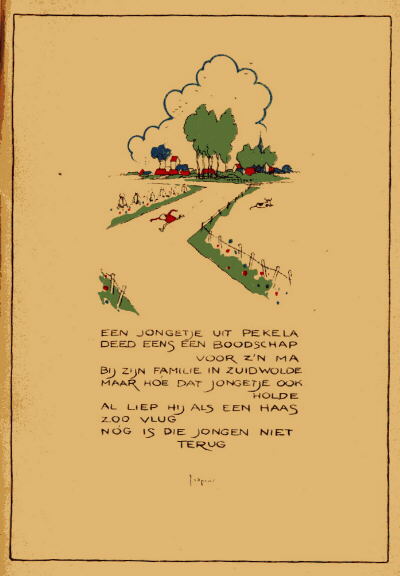 EEN JONGETJE UIT PEKELA
DEED EENS EEN BOODSCHAP
VOOR Z'N MA
BIJ ZIJN FAMILIE IN ZUIDWOLDE
MAAR HOE DAT JONGETJE OOK
HOLDE
AL LIEP HIJ ALS EEN HAAS
ZOO VLUG
NÓG IS DIE JONGEN NIET
TERUG